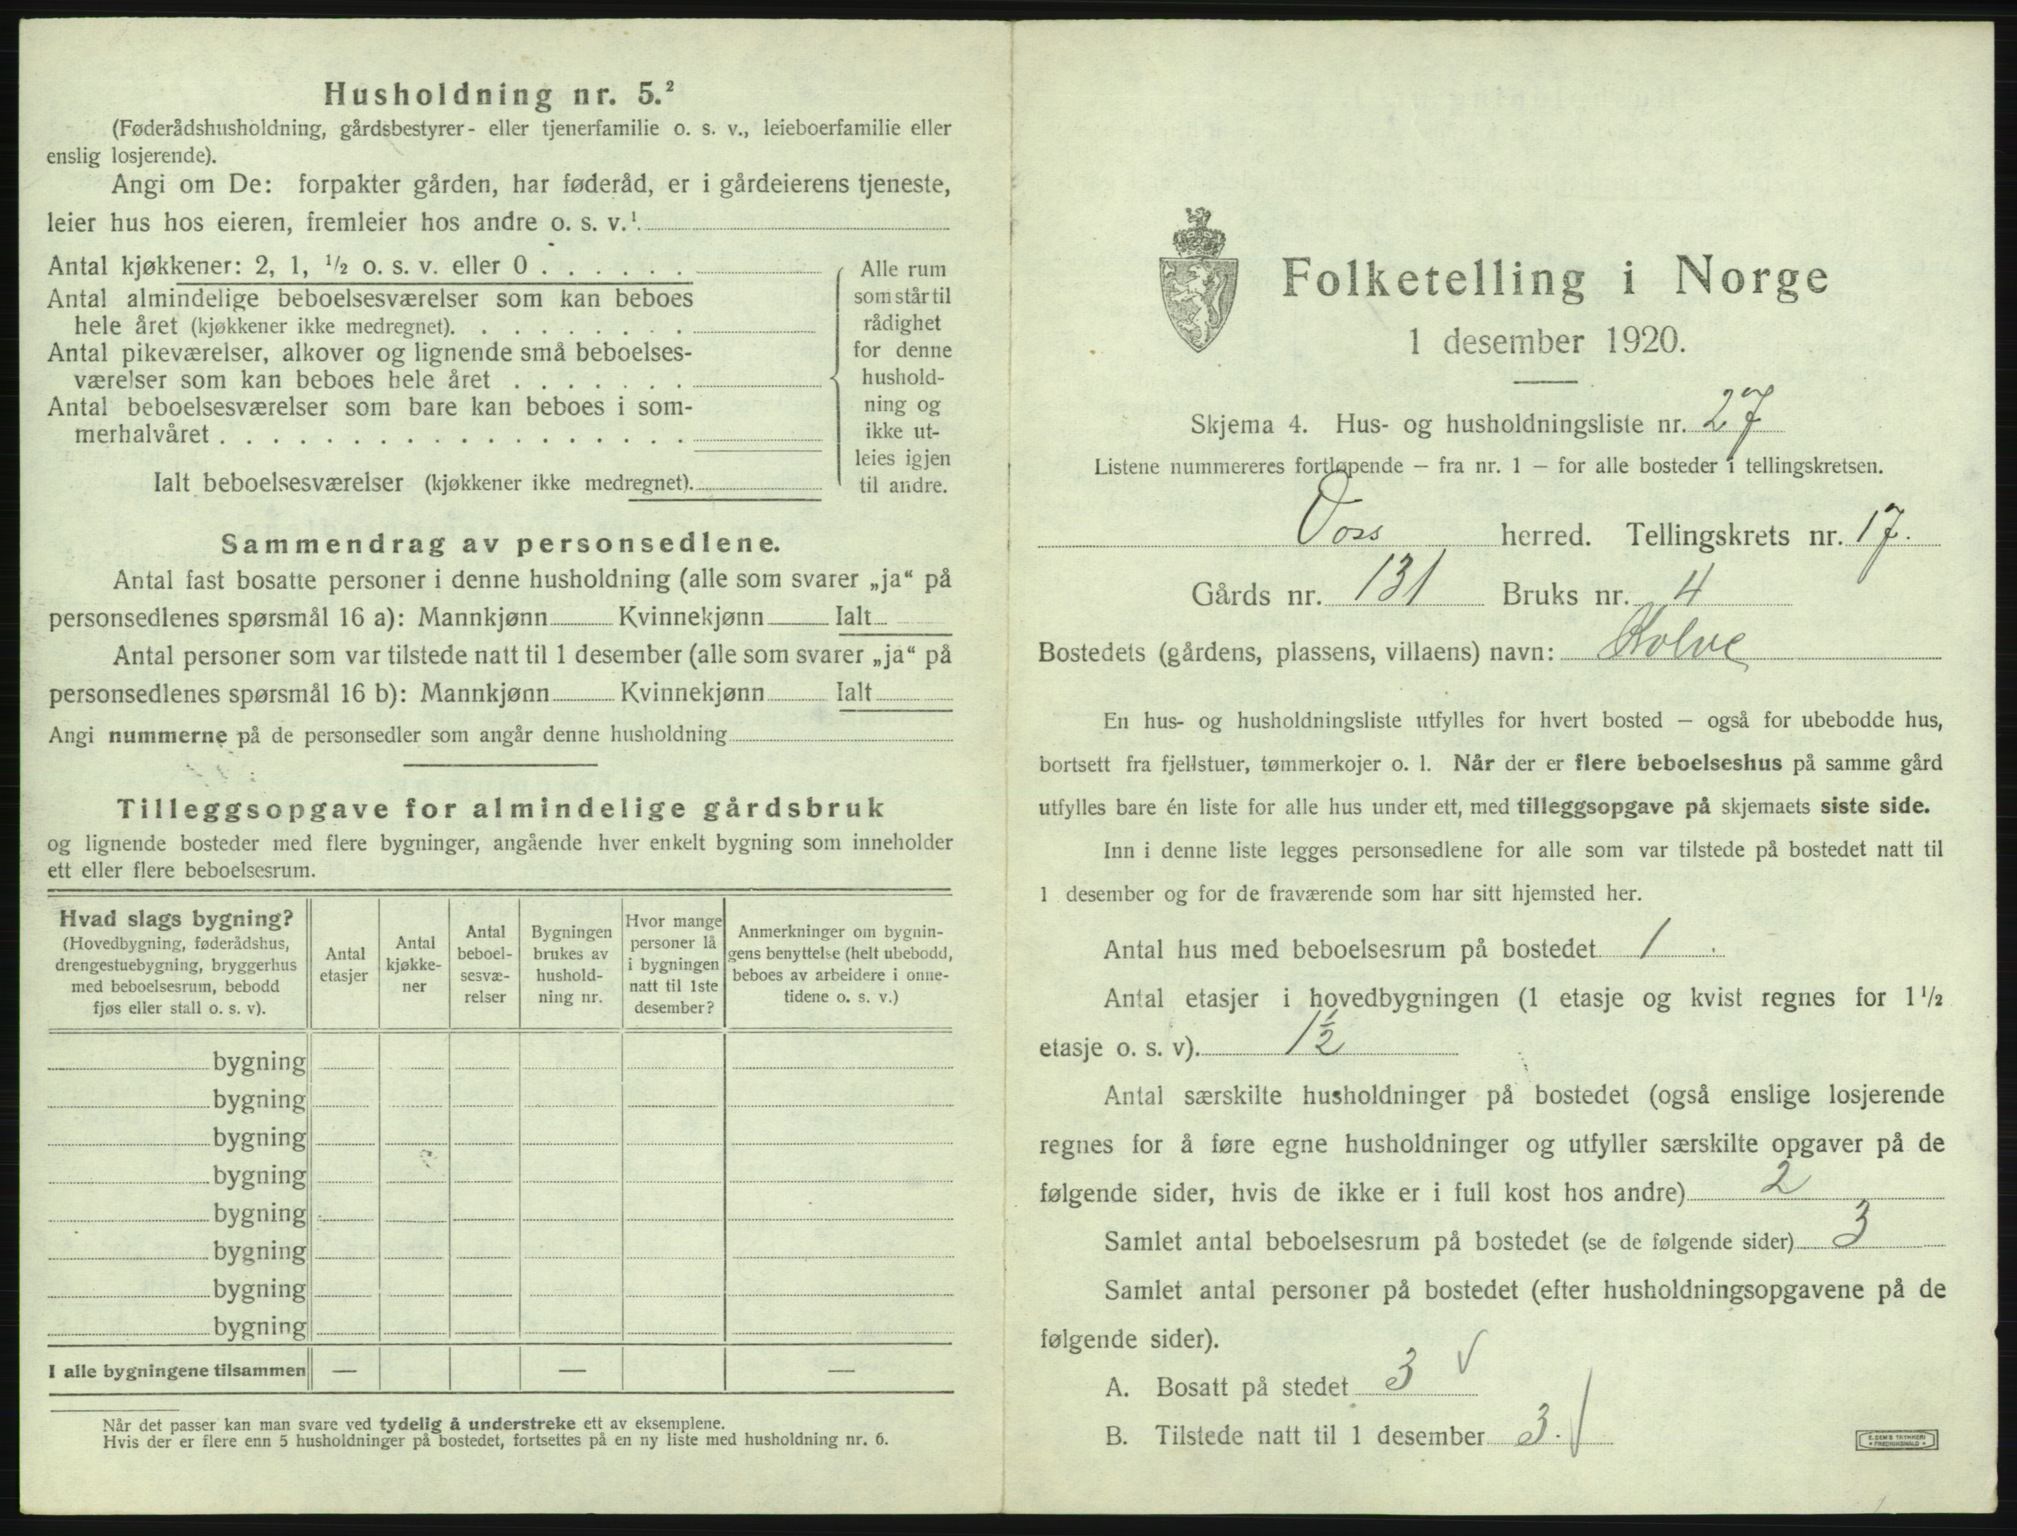 Husholdning nr. 5.²
(Føderådshusholdning, gårdsbestyrer- eller tjenerfamilie o. s. v., leieboerfamilie eller
enslig losjerende).
Angi om De: forpakter gården, har føderåd, er i gårdeierens tjeneste,
leier hus hos eieren, fremleier hos andre o. s. v.¹
Antal kjøkkener: 2, 1, ½ o. s. v. eller 0 . . . . . .
Antal almindelige beboelsesværelser som kan beboes
hele året (kjøkkener ikke medregnet). . . . . . . . .
Antal pikeværelser, alkover og lignende små beboelses-
værelser som kan beboes hele året . . . . . . .
Antal beboelsesværelser som bare kan beboes i som-
merhalvåret . . . . . . . . . . . . . . . . . .
Ialt beboelsesværelser (kjøkkener ikke medregnet).
Alle rum
som står til
rådighet
for denne
hushold-
ning og
ikke ut-
leies igjen
til andre.
Sammendrag av personsedlene.
Antal fast bosatte personer i denne husholdning (alle som svarer „ja“ på
personsedlenes spørsmål 16 a): Mannkjønn Kvinnekjønn Ialt
Antal personer som var tilstede natt til 1 desember (alle som svarer „ja“ på
personsedlenes spørsmål 16 b): Mannkjønn Kvinnekjønn Ialt
Angi nummerne på de personsedler som angår denne husholdning
Tilleggsopgave for almindelige gårdsbruk
og lignende bosteder med flere bygninger, angående hver enkelt bygning som inneholder
ett eller flere beboelsesrum.
Hvad slags bygning?
(Hovedbygning, føderådshus,
drengestuebygning, bryggerhus
med beboelsesrum, bebodd
fjøs eller stall o. s. v).
Antal
etasjer
Antal
kjøkke-
ner
Antal
beboel-
sesvæ-
relser
Bygningen
brukes av
hushold-
ning nr.
Hvor mange
personer lå
i bygningen
natt til 1ste
desember?
Anmerkninger om bygnin-
gens benyttelse (helt ubebodd,
beboes av arbeidere i onne-
tidene o. s. v.)
bygning
bygning
bygning
bygning
bygning
bygning
bygning
bygning
I alle bygningene tilsammen — — —
Når det passer kan man svare ved tydelig å understreke ett av eksemplene.
Hvis der er flere enn 5 husholdninger på bostedet, fortsettes på en ny liste med husholdning nr. 6.
Folketelling i Norge
1 desember 1920.
Skjema 4. Hus- og husholdningsliste nr. 27
Listene nummereres fortløpende — fra nr. 1 — for alle bosteder i tellingskretsen.
Voss herred. Tellingskrets nr. 17.
Gårds nr. 131 Bruks nr. 4
Bostedets (gårdens, plassens, villaens) navn: Kolve
En hus- og husholdningsliste utfylles for hvert bosted — også for ubebodde hus,
bortsett fra fjellstuer, tømmerkojer o. l. Når der er flere beboelseshus på samme gård
utfylles bare én liste for alle hus under ett, med tilleggsopgave på skjemaets siste side.
Inn i denne liste legges personsedlene for alle som var tilstede på bostedet natt til
1 desember og for de fraværende som har sitt hjemsted her.
Antal hus med beboelsesrum på bostedet 1.
Antal etasjer i hovedbygningen (1 etasje og kvist regnes for 1½
etasje o. s. v). 1½
Antal særskilte husholdninger på bostedet (også enslige losjerende
regnes for å føre egne husholdninger og utfyller særskilte opgaver på de
følgende sider, hvis de ikke er i full kost hos andre) 2
Samlet antal beboelsesrum på bostedet (se de følgende sider) 3
Samlet antal personer på bostedet (efter husholdningsopgavene på de
følgende sider).
A. Bosatt på stedet 3 √
B. Tilstede natt til 1 desember 3. √
E. SEM'S TRYKKERI
• FREDRIKSHALD •